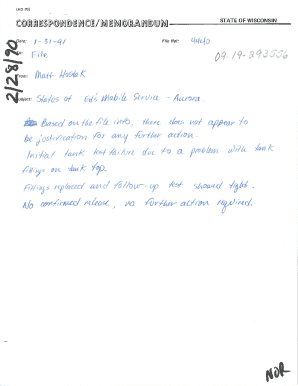 CORRESPONDENCE/MEMORANDUM STATE OF WISCONSIN
Date: 1-31-91 File Ref: 4440
09-19-293556
To: File
From: Matt
2/28/90
Subject: Status of Ed's Mobile Service - Aurora.
Based on the file info, there does not appear to
be justification for any further action.
Initial tank test failure due to a problem with tank
fittings on tank top.
Fittings replaced and follow-up test showed tight.
No confirmed release, no further action required.
NOR